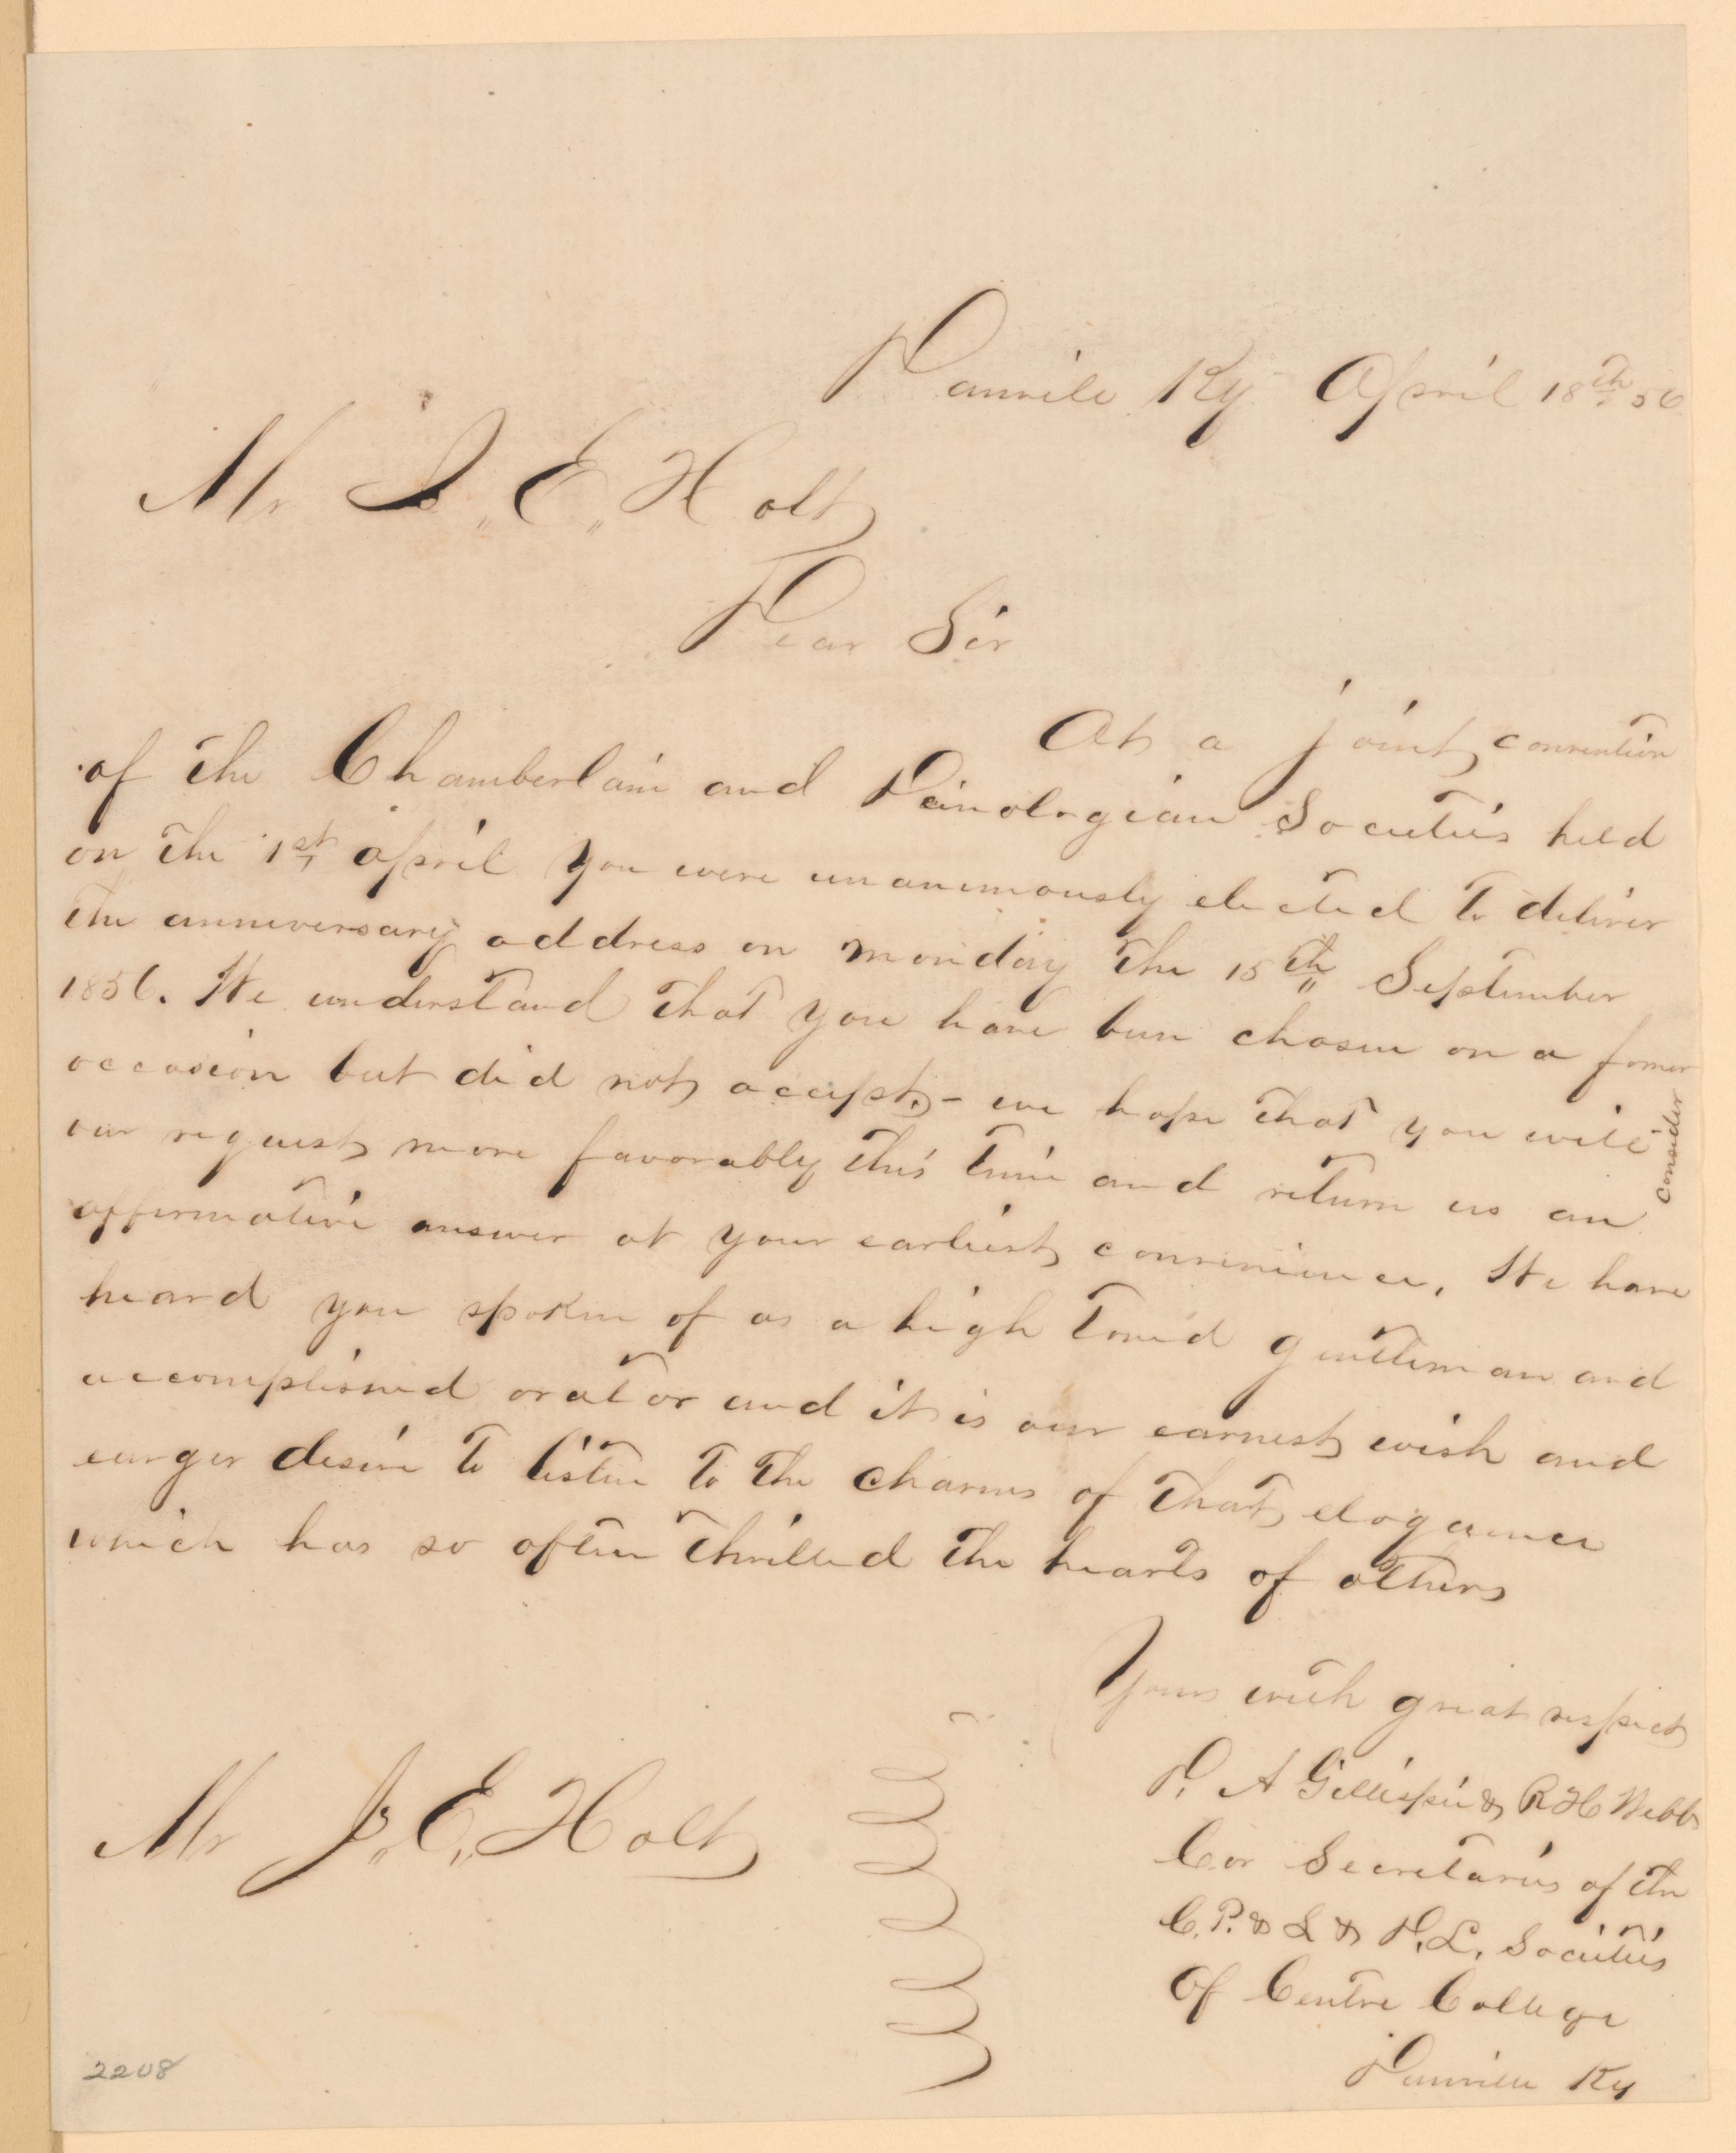 Danvile Ky April 18th 56
Mr J. E. Holt
Dear Sir
At a joint convention
of the Chamberlain and Deinologian Societies held
on the 1st April you were unanimously elected to deliver
the anniversary address on monday the 15th September
1856. We understand that you have been chosen on a former
occasion but did not accept,- we hope that you will consider
our request more favorably this time and return us an
affirmative answer at your earliest convenience, We have
heard you spoken of as a high toned gentleman and
accomplished orator and it is our earnest wish and
eurger desire to listen to the charms of that eloquence
which has so often thrilled the hearts of others
Yours with great respect
D. A Gillispie & R H Webb
Cor Secretaries of the
C. P. & L & D. L. Societies
Of Centre College
Danville Ky
Mr J. E. Holt
2208